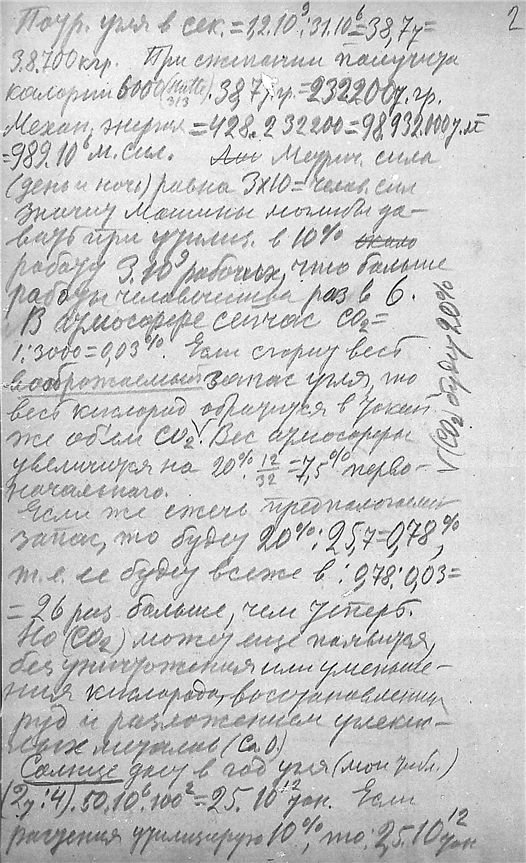 2
Потр. угля в сек. = 1,2.10⁹:31.10⁶=38,7 т=
38.700 кгр. При сжигании получится
калорий 6000 . 38,7 т.гр.=232200 т. гр.
Механ. энергия = 428.232200=98932000 т.м
=989.10⁶ м. сил. Метрич. сила
(день и ночь) равна 3×10= челов. сил
значит машины могли бы да-
вать при утилиз. в 10% около
работу 3.10⁹ рабочих, что больше
работы человечества раз в 6.
В атмосфере сейчас CO₂=
1:3000=0,03%. Если сгорит весь
воображаемый запас угля, то
весь кислород обратится в такой
же объём CO₂ V. Вес атмосферы
V (CO₂ будет 20%
увеличится на 20%. 12/32=7,5% перво-
начального.
Если же сжечь предполагаемый
запас, то будет 20%:25,7=0,78%,
т.е. её будет всё же в : 0,78:0,03=
=26 раз больше, чем теперь.
Но (CO₂) может ещё появиться,
без уничтожения или уменьше-
ния кислорода, восстановлением
руд и разложением углекис-
лых металлов (Ca O)
Солнце даёт в год угля (мои )
(2 т:4).50.10⁶.100²=25.10¹² тон. Если
растения утилизируют 10%, то: 2,5.10¹² тон